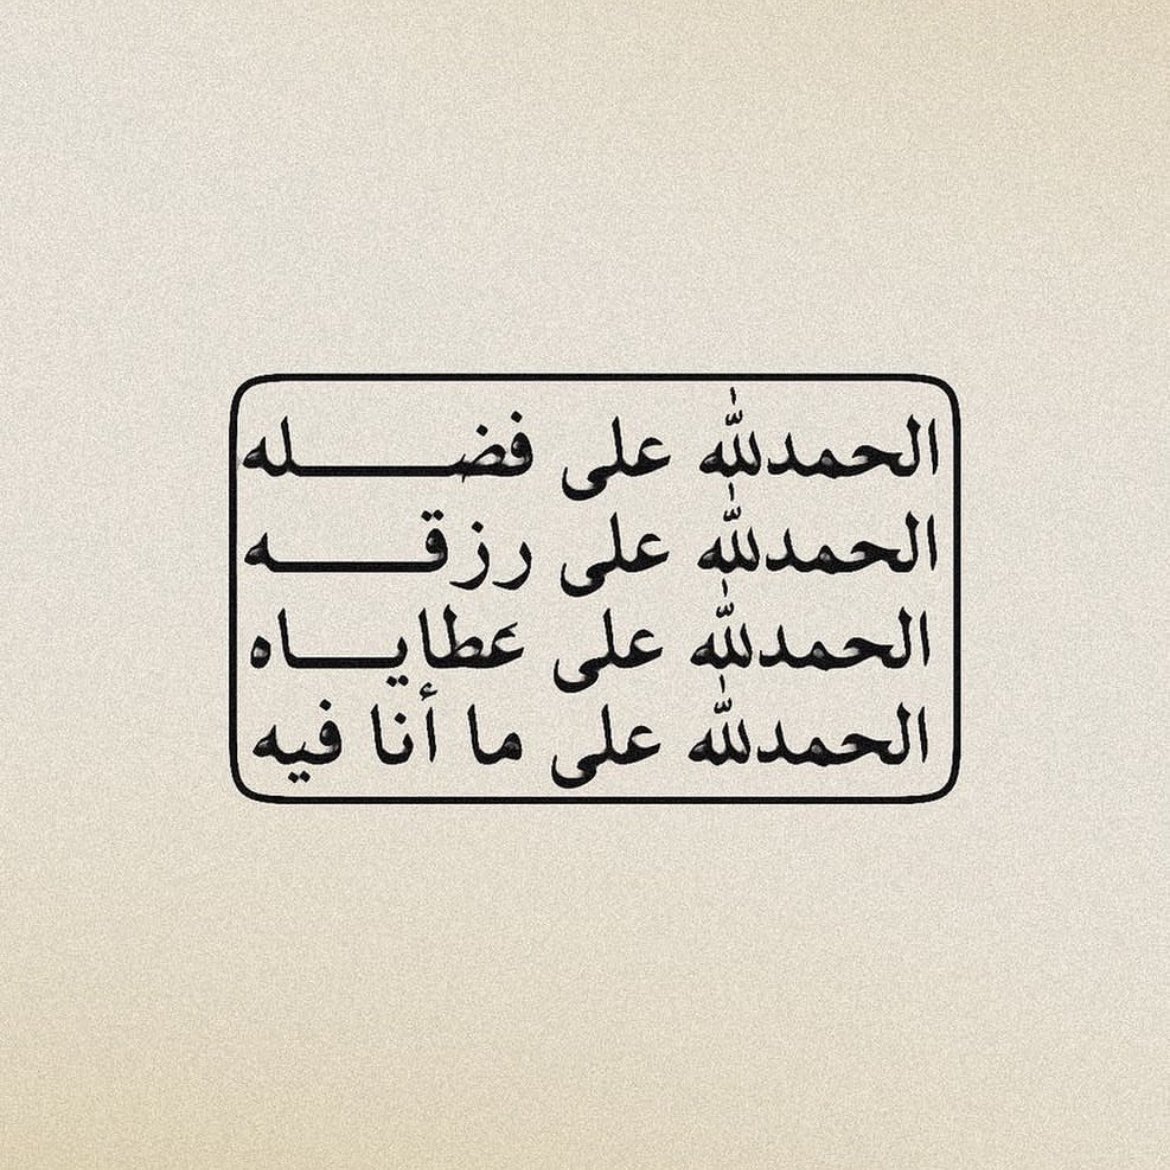 الحمدلله على فضـــــله
الحمدلله على رزقـــــه
الحمدلله على عطايـــاه
الحمدلله على ما أنا فيه